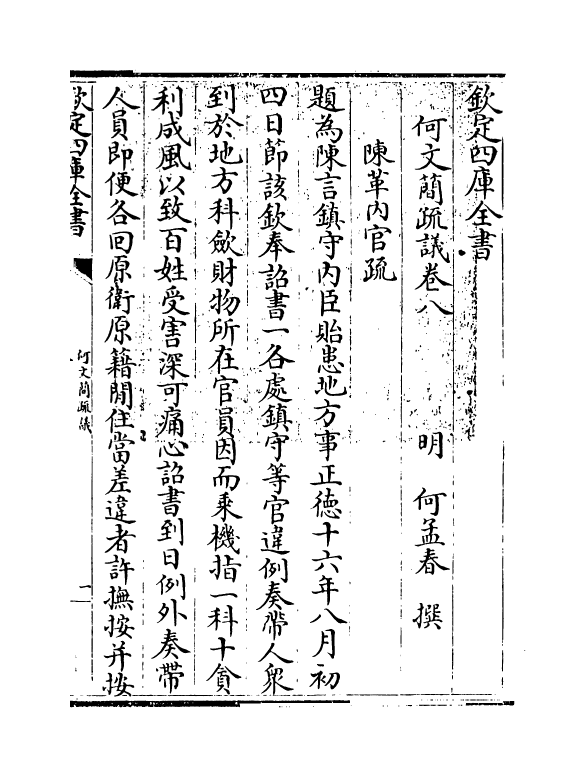 欽定四庫全書
何文簡疏議卷八
明 何孟春 撰
陳革內官疏
題為陳言鎮守內臣貽患地方事正徳十六年八月初
四日節該欽奉詔書一各處鎮守等官違例奏帶人衆
到於地方科歛財物所在官員因而乘機指一科十貪
利成風以致百姓受害深可痛心詔書到日例外奏帶
人員即便各回原衛原籍閒住當差違者許撫按并按
欽定四庫全書
何文簡疏議
一